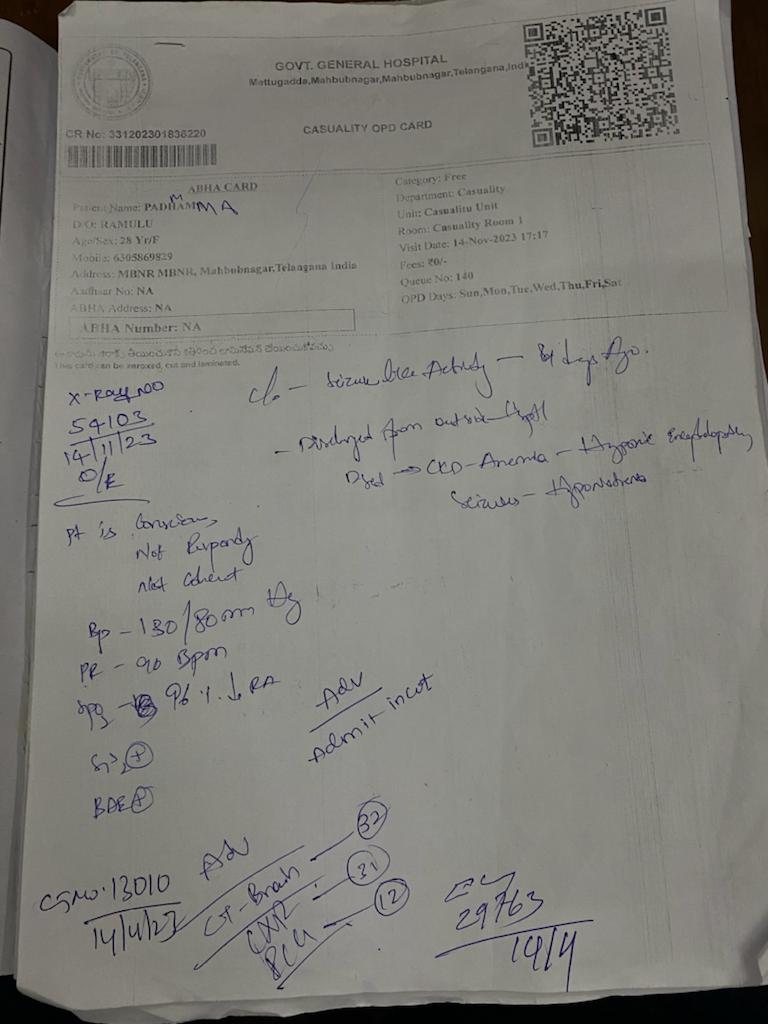 GOVT. GENERAL HOSPITAL
Mettugadda,Mahbubnagar,Mahbubnagar,Telangana,Indi
CR No: 331202301836220
CASUALITY OPD CARD
ABHA CARD
Patient Name: PADHAMMA
D/O: RAMULU
Age/Sex: 28 Yr/F
Mobile: 6305869829
Address: MBNR MBNR, Mahbubnagar,Telangana India
Aadhaar No: NA
ABHA Address: NA
ABHA Number: NA
Category: Free
Department: Casuality
Unit: Casualitu Unit
Room: Casuality Room 1
Visit Date: 14-Nov-2023 17:17
Fees: ₹0/-
Queue No: 140
OPD Days: Sun,Mon,Tue,Wed,Thu,Fri,Sat
This card can be xeroxed, cut and laminated.
X-Ray NO
54103
14/11/23
O/E
c/o - Seizure like Activity - days Ago.
- Discharged from outside
CKD - Anemia - Encephalopathy
Seizures -
Pt is Conscious,
Not
Not Coherent
Bp - 130/80mm Hg
PR - 90 Bpm
96 % ↓ RA
BAE ⊕
Adv
Admit in
Adv
CT-Brain - 32
CXR - 31
12
13010
29763
14/4